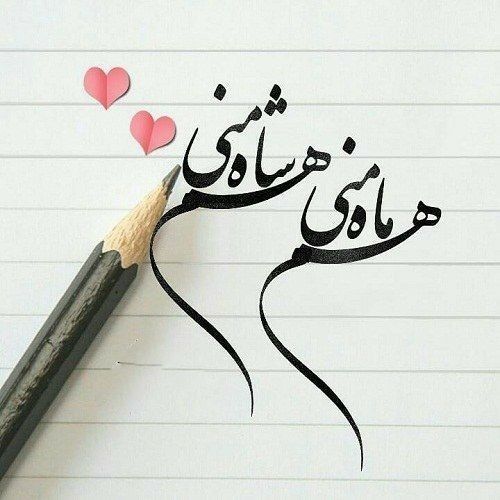 هم ماه منی
هم شاه منی